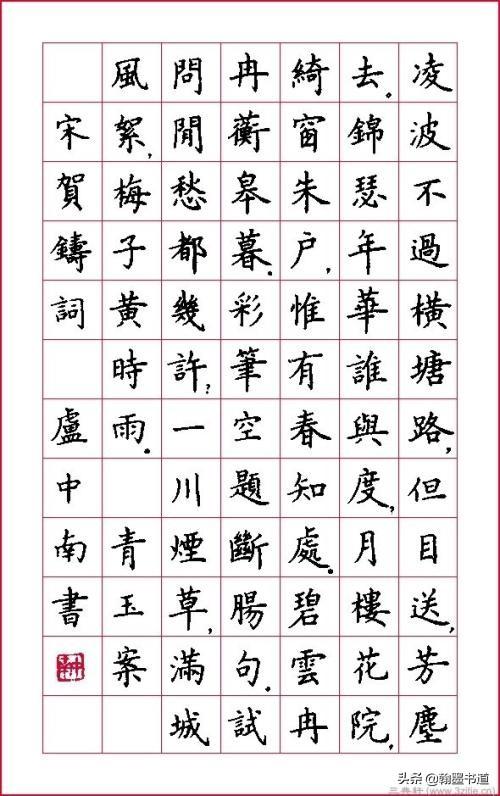 凌波不過橫塘路,但目送,芳塵
去。錦瑟年華誰與度,月樓花院,
綺窗朱户,惟有春知處。碧雲冉
冉蘅皋暮。彩筆空題斷腸句。試
問閒愁都幾許?一川煙草,滿城
風絮,梅子黃時雨。 青玉案
宋賀鑄詞 盧中南書
头条 @翰墨书道
(www.3zitie.cn)